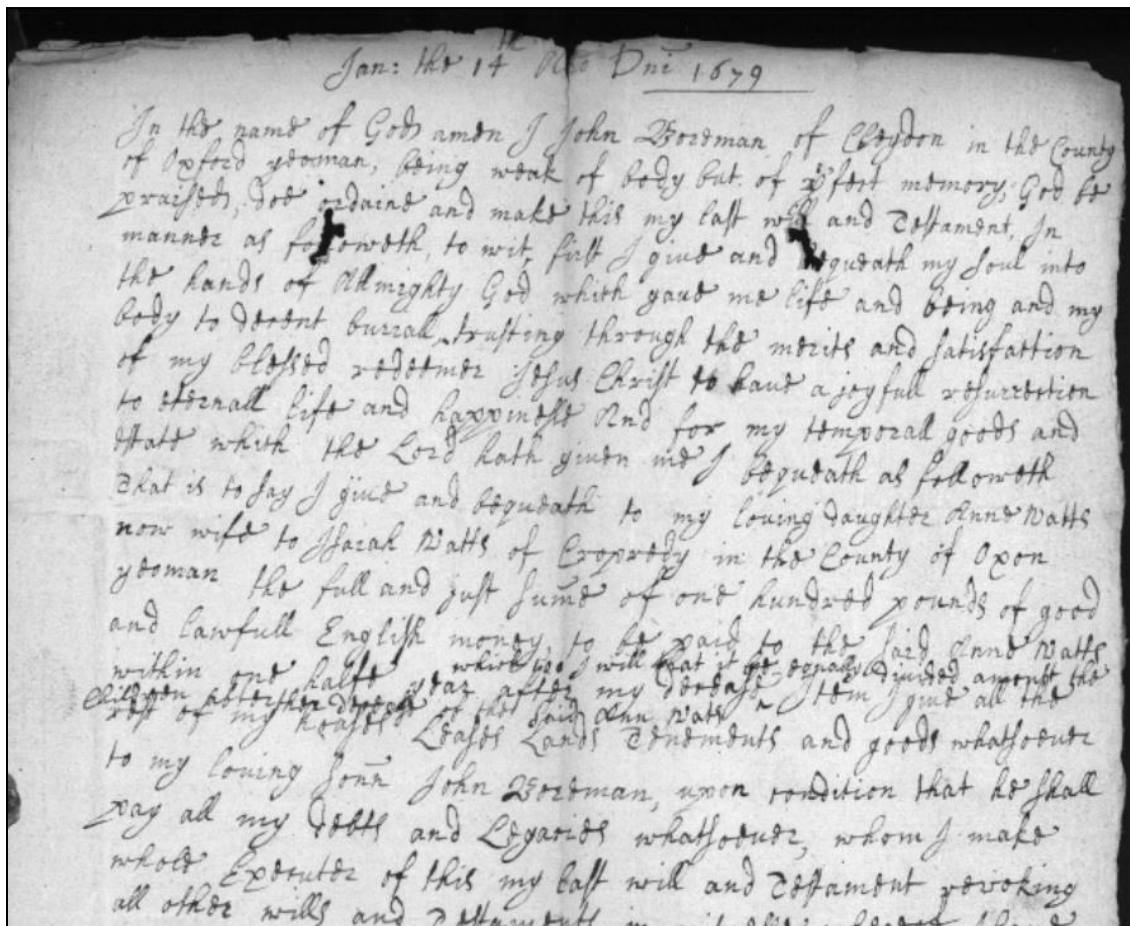 Jan: the 14th Ano Dni 1679
In the name of God amen I John Boreman of Cleydon in the County
of Oxford yeoman, being weak of body but of pfect memory, God be
praised, doe ordaine and make this my last will and Testament, In
manner as followeth, to wit, first I give and bequeath my soul into
the hands of Allmighty God which gave me life and being and my
body to decent buriall, trusting through the merits and satisfaction
of my blessed redeemer Jesus Christ to have a joyfull resurrection
to eternall life and happinesse And for my temporall goods and
estate which the Lord hath given me I bequeath as followeth
That is to say I give and bequeath to my loving daughter Anne Watts
now wife to Isaiah Watts of Cropredy in the County of Oxon
yeoman the full and just sume of one hundred pounds of good
and lawfull English money, to be paid to the said Anne Watts
which I will that it be equally divided amonst the
within one halfe year after my decease, Item I give all the
Children after the decease of the said Ann Watts
rest of my houses Leases Lands Tenements and goods whatsoever
to my loving sonn John Boreman, upon condition that he shall
pay all my debts and Legacies whatsoever, whom I make
whole Executer of this my last will and Testament revoking
all other wills and Testaments